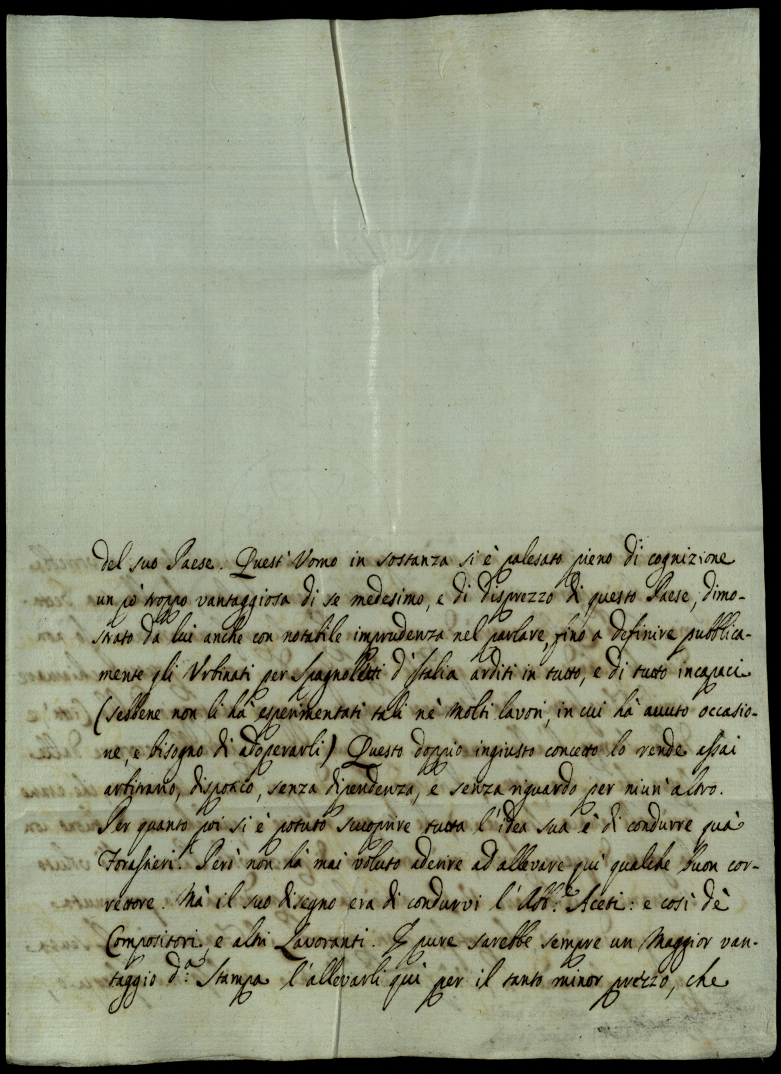 del suo Paese. Quest' Vomo in sostanza si è palesato pieno di cognizione
un pò troppo vantaggiosa di se medesimo, e di disprezzo di questo Paese, dimo-
strato da lui anche con notabile imprudenza nel parlare, fino a definire pubblica-
mente gli Urbinati per Spagnoletti d'Italia arditi in tutto, e di tutto incapaci
(sebbene non li hà esperimentati tali nè molti lavori, in cui hà avuto occasio-
ne, e bisogno di adoperarli) Questo doppio ingiusto concetto lo rende assai
arbitrario, dispotico, senza dipendenza, e senza riguardo per niun' altro.
Per quanto poi si è potuto scuoprire tutta l'idea sua è di condurre quà
Forastieri. Però non hà mai voluto aderire ad allevare quì qualche buon cor-
rettore. Mà il suo disegno era di condurvi l'Abb.e Aceti: e così dè
Compositori, e altri Lavoranti. E pure sarebbe sempre un Maggior van-
taggio d.a Stampa l'allevarli quì per il tanto minor prezzo, che